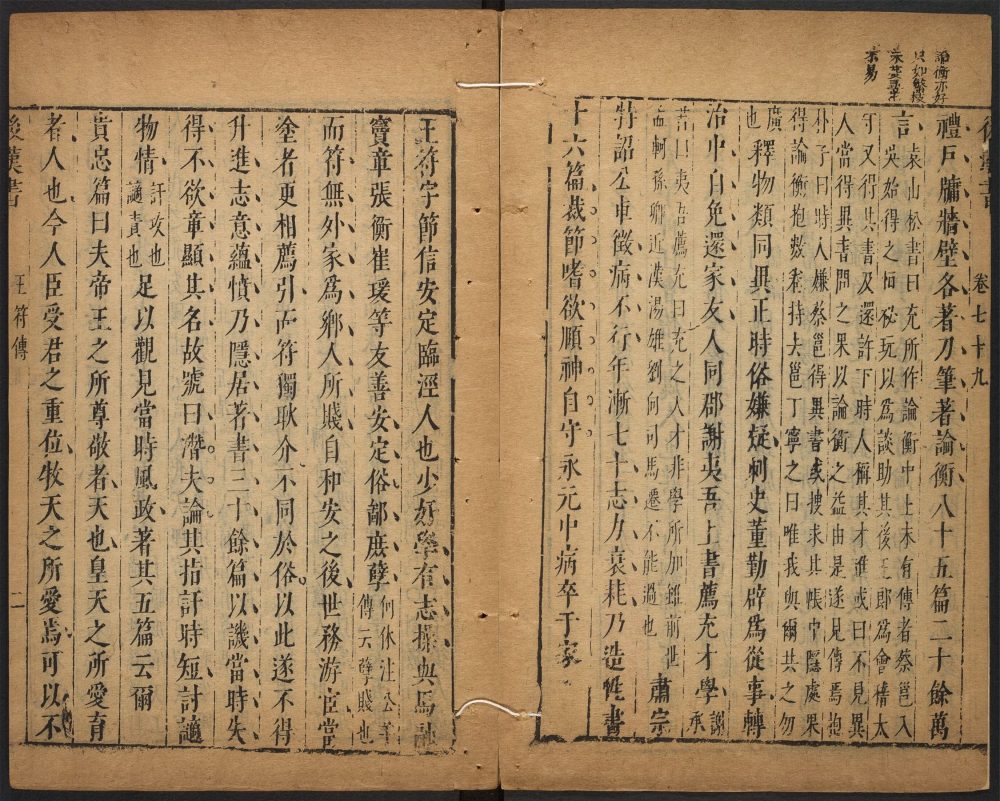 卷七十九
禮戶牖牆壁各著刀筆著論衡八十五篇二十餘萬
言袁山松書曰充所作論衡中土未有傳者蔡邕入
吳始得之恒祕玩以爲談助其後王郎爲會稽太
守又得其書及還許下時人稱其才進或曰不見異
人當得異書問之果以論衡之益由是遂見傳焉抱
朴子曰時人嫌蔡邕得異書或搜求其帳中隱處果
得論衡抱數卷持去邕丁寧之曰唯我與爾共之勿
廣
也釋物類同異正時俗嫌疑刺史董勤辟爲從事轉
治中自免還家友人同郡謝夷吾上書薦充才學謝
承
書曰夷吾薦充曰充之天才非學所加雖前世
孟軻孫卿近漢楊雄劉向司馬遷不能過也肅宗
特詔公車徵病不行年漸七十志力衰耗乃造性書
十六篇裁節嗜欲頤神自守永元中病卒于家
王符字節信安定臨涇人也少好學有志操與馬融
竇章張衡崔瑗等友善安定俗鄙庶孽何休注公羊
傳云孽賤也
而符無外家爲鄉人所賤自和安之後世務游宦當
塗者更相薦引而符獨耿介不同於俗以此遂不得
升進志意蘊憤乃隱居著書三十餘篇以譏當時失
得不欲章顯其名故號曰潛夫論其指訐時短討讁
物情訐攻也
讁責也足以觀見當時風政著其五篇云爾
貴忠篇曰夫帝王之所尊敬者天也皇天之所愛育
者人也今人臣受君之重位牧天之所愛焉可以不
後漢書 王符傳 二